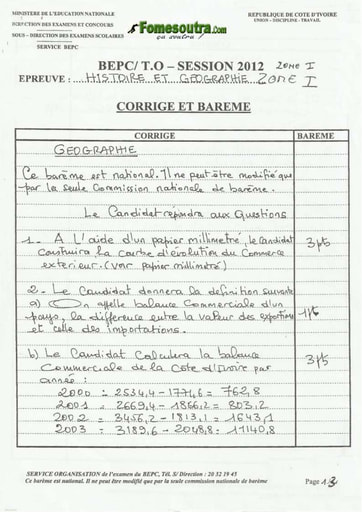 MINISTERE DE L'EDUCATION NATIONALE
DIRECTION DES EXAMENS ET CONCOURS
SOUS - DIRECTION DES EXAMENS SCOLAIRES
SERVICE BEPC
Fomesoutra.com
ça soutra !
REPUBLIQUE DE COTE D'IVOIRE
UNION - DISCIPLINE - TRAVAIL
BEPC/ T.O – SESSION 2012 ZONE I
EPREUVE : HISTOIRE ET GEOGRAPHIE ZONE I
CORRIGE ET BAREME
CORRIGE BAREME
GEOGRAPHIE
Ce barème est national. Il ne peut être modifié que
par la seule Commission nationale de barème.
Le Candidat répondra aux Questions
1- A l'aide d'un papier millimétré, le candidat 3 pts
construira la courbe d'évolution du Commerce
exterieur. (voir papier millimétré)
2- Le Candidat donnera la définition suivante
a) On appelle balance Commerciale d'un
pays, la différence entre la valeur des exportions 1pt
et celle des importations.
b) Le Candidat Calculera la balance 3pts
Commerciale de la Côte d'Ivoire par
année :
2000 = 2534,4 - 1771,6 = 762,8
2001 = 2669,4 - 1866,2 = 803,2
2002 = 3456,2 - 1813,1 = 1643,1
2003 = 3189,6 - 2048,8 = 1140,8
SERVICE ORGANISATION de l'examen du BEPC, Tél. S/ Direction : 20 32 19 45
Ce barème est national. Il ne peut être modifié que par la seule commission nationale de barème
Page 1/3